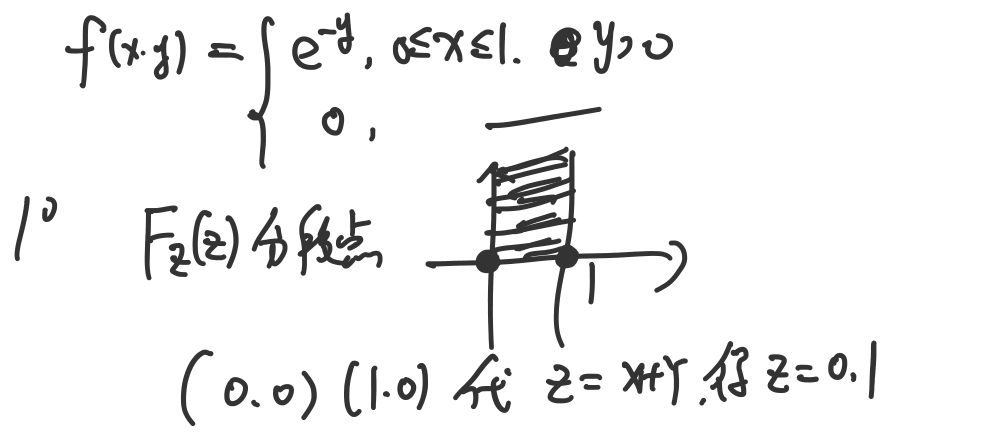 f(x.y) = { e^{-y}, 0≤x≤1. y>0
0,
1° F_Z(z) 分段点
1
(0.0) (1.0) 代 z=x+y.得 z=0.1